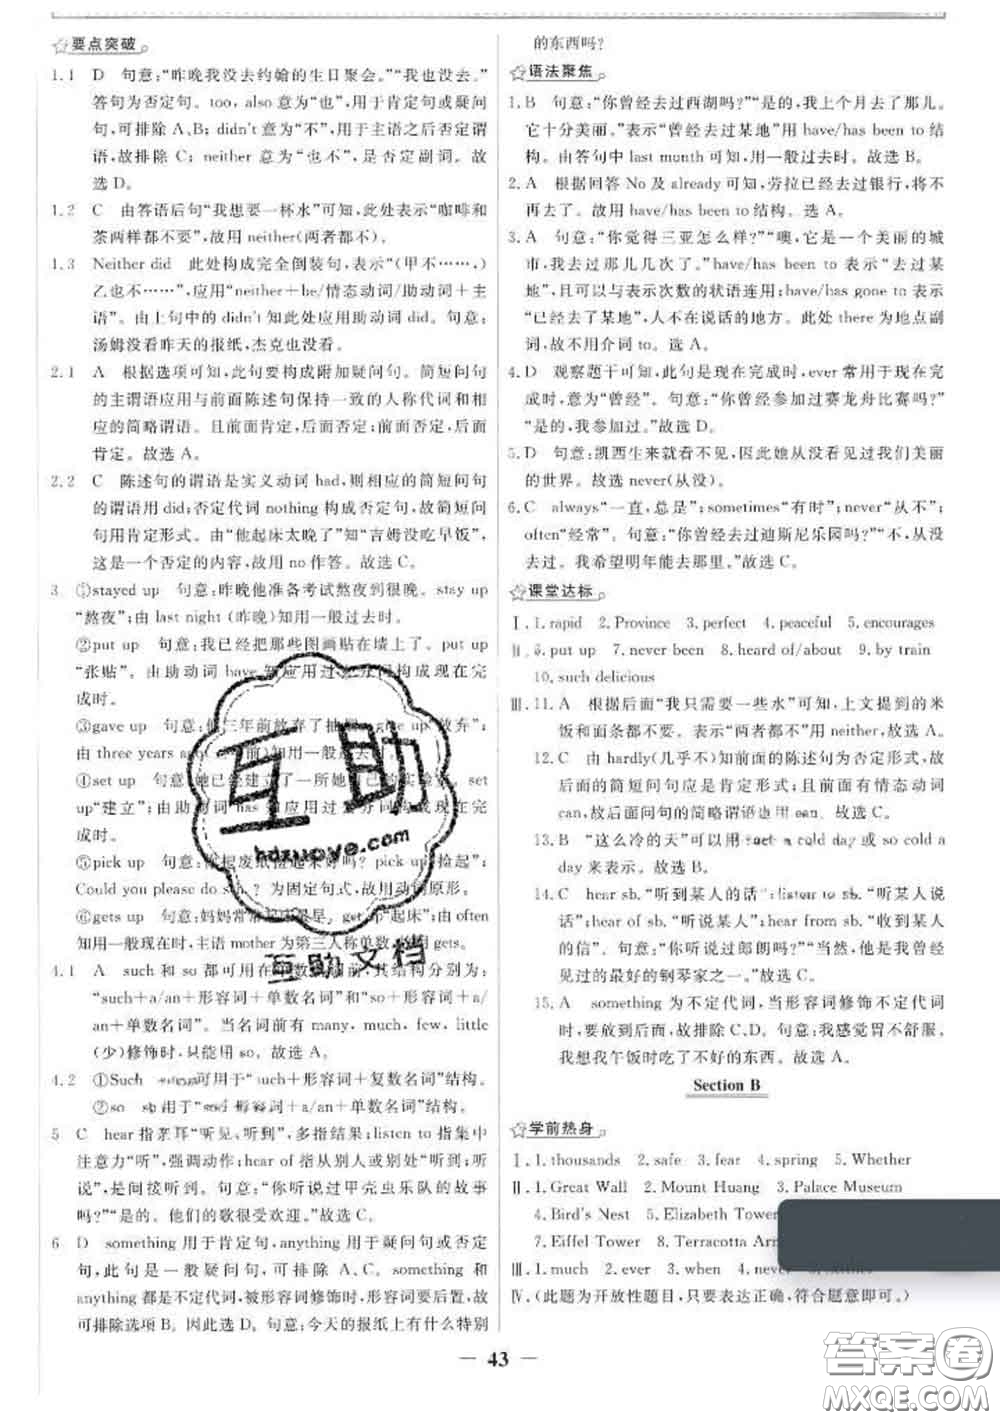 要点突破
1.1 D 句意:“昨晚我没去约翰的生日聚会。”“我也没去。”
答句为否定句。too, also 意为“也”,用于肯定句或疑问
句,可排除 A、B; didn't 意为“不”,用于主语之后否定谓
语,故排除 C; neither 意为“也不”,是否定副词。故
选 D。
1.2 C 由答语后句“我想要一杯水”可知,此处表示“咖啡和
茶两样都不要”,故用 neither(两者都不)。
1.3 Neither did 此处构成完全倒装句,表示“(甲不……,)
乙也不……”,应用“neither+be/情态动词/助动词+主
语”。由上句中的 didn't 知此处应用助动词 did。句意:
汤姆没看昨天的报纸,杰克也没看。
2.1 A 根据选项可知,此句要构成附加疑问句。简短问句
的主谓语应用与前面陈述句保持一致的人称代词和相
应的简略谓语。且前面肯定,后面否定;前面否定,后面
肯定。故选 A。
2.2 C 陈述句的谓语是实义动词 had,则相应的简短问句
的谓语用 did;否定代词 nothing 构成否定句,故简短问
句用肯定形式。由“他起床太晚了”知“吉姆没吃早饭”,
这是一个否定的内容,故用 no 作答。故选 C。
3 ①stayed up 句意:昨晚他准备考试熬夜到很晚。stay up
“熬夜”;由 last night (昨晚)知用一般过去时。
②put up 句意:我已经把那些图画贴在墙上了。put up
“张贴”;由助动词 have 知应用过去分词构成现在完
成时。
③gave up 句意:他三年前放弃了抽 give up“放弃”;
由 three years ago( 前)知用一般过去时。
④set up 句意:她已经建立了一所她自己的实验室。set
up“建立”;由助动词 has 知应用过去分词构成现在完
成时。
⑤pick up 句意: 把废纸捡起来好吗? pick up“捡起”;
Could you please do sth.? 为固定句式,故用动词原形。
⑥gets up 句意:妈妈常常起床最早。get up“起床”;由 often
知用一般现在时,主语 mother 为第三人称单数,故用 gets。
4.1 A such 和 so 都可用在单数名词前,其结构分别为:
“such+a/an+形容词+单数名词”和“so+形容词+a/
an+单数名词”。当名词前有 many, much, few, little
(少)修饰时,只能用 so。故选 A。
4.2 ①Such 可用于“such+形容词+复数名词”结构。
②so 用于“so+形容词+a/an+单数名词”结构。
5 C hear 指亲耳“听见、听到”,多指结果;listen to 指集中
注意力“听”,强调动作;hear of 指从别人或别处“听
说”,是间接听到。句意:“你听说过甲壳虫乐队的故事
吗?”“是的。他们的歌很受欢迎。”故选 C。
6 D something 用于肯定句,anything 用于疑问句或否定
句,此句是一般疑问句,可排除 A、C。something 和
anything 都是不定代词,被形容词修饰时,形容词要后置,故
可排除选项 B。因此选 D。句意:今天的报纸上有什么特别
的东西吗?
语法聚焦
1. B 句意:“你曾经去过西湖吗?”“是的,我上个月去了那儿。
它十分美丽。”表示“曾经去过某地”用 have/has been to 结
构。由答句中 last month 可知,用一般过去时。故选 B。
2. A 根据回答 No 及 already 可知,劳拉已经去过银行,将不
再去了。故用 have/has been to 结构。选 A。
3. A 句意:“你觉得三亚怎么样?”“噢,它是一个美丽的城
市,我去过那儿几次了。”have/has been to 表示“去过某
地”,且可以与表示次数的状语连用;have/has gone to 表示
“已经去了某地”,人不在说话的地方。此处 there 为地点副
词,故不用介词 to。选 A。
4. D 观察题干可知,此句是现在完成时,ever 常用于现在完
成时,意为“曾经”。句意:“你曾经参加过赛龙舟比赛吗?”
“是的,我参加过。”故选 D。
5. D 句意:凯西生来就看不见,因此她从没看见过我们美丽
的世界。故选 never(从没)。
6. C always“一直,总是”;sometimes“有时”;never“从不”;
often“经常”。句意:“你曾经去过迪斯尼乐园吗?”“不,从没
去过。我希望明年能去那里。”故选 C。
课堂达标
Ⅰ. 1. rapid 2. Province 3. perfect 4. peaceful 5. encourages
Ⅱ. 6. put up 7. never been 8. heard of/about 9. by train
10. such delicious
Ⅲ. 11. A 根据后面“我只需要一些水”可知,上文提到的米
饭和面条都不要。表示“两者都不”用 neither,故选 A。
12. C 由 hardly(几乎不)知前面的陈述句为否定形式,故
后面的简短问句应是肯定形式;且前面有情态动词
can,故后面问句的简略谓语边用 can。故选 C。
13. B “这么冷的天”可以用 such a cold day 或 so cold a
day 来表示。故选 B。
14. C hear sb. “听到某人的话”;listen to sb. “听某人说
话”;hear of sb. “听说某人”;hear from sb. “收到某人
的信”。句意:“你听说过郎朗吗?”“当然,他是我曾经
见过的最好的钢琴家之一。”故选 C。
15. A something 为不定代词,当形容词修饰不定代词
时,要放到后面,故排除 C、D。句意:我感觉胃不舒服,
我想我午饭时吃了不好的东西。故选 A。
Section B
学前热身
Ⅰ. 1. thousands 2. safe 3. fear 4. spring 5. Whether
Ⅱ. 1. Great Wall 2. Mount Huang 3. Palace Museum
4. Bird's Nest 5. Elizabeth Tower
7. Eiffel Tower 8. Terracotta
Ⅲ. 1. much 2. ever 3. when 4. never
Ⅳ. (此题为开放性题目,只要表达正确,符合题意即可。)
互助
hdzuoye.com
互助文档
— 43 —
答案圈
MXQE.COM